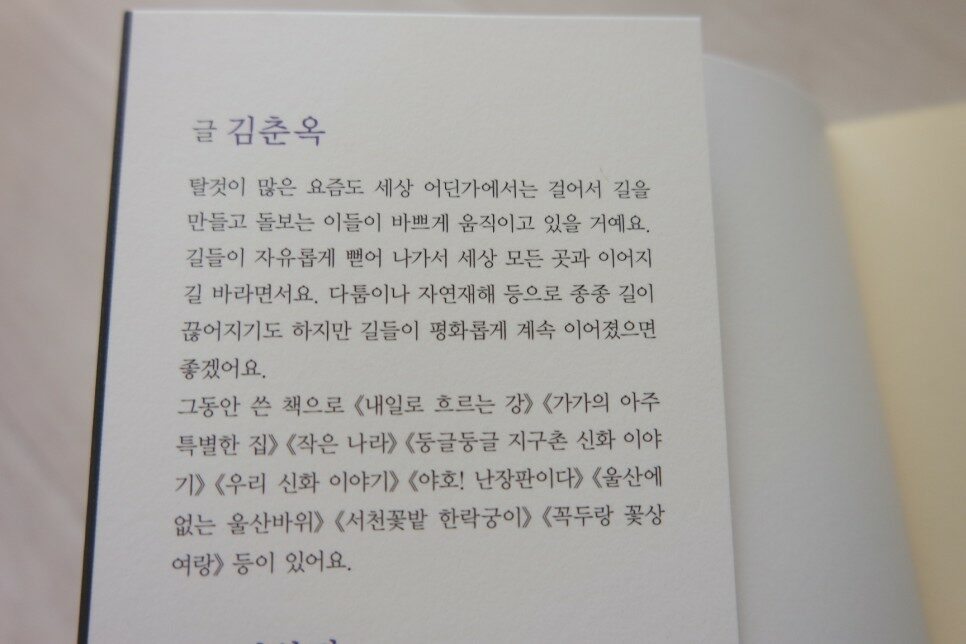 글 김춘옥
탈것이 많은 요즘도 세상 어딘가에서는 걸어서 길을
만들고 돌보는 이들이 바쁘게 움직이고 있을 거예요.
길들이 자유롭게 뻗어 나가서 세상 모든 곳과 이어지
길 바라면서요. 다툼이나 자연재해 등으로 종종 길이
끊어지기도 하지만 길들이 평화롭게 계속 이어졌으면
좋겠어요.
그동안 쓴 책으로 《내일로 흐르는 강》 《가가의 아주
특별한 집》 《작은 나라》 《둥글둥글 지구촌 신화 이야
기》 《우리 신화 이야기》 《야호! 난장판이다》 《울산에
없는 울산바위》 《서천꽃밭 한락궁이》 《꼭두랑 꽃상
여랑》 등이 있어요.